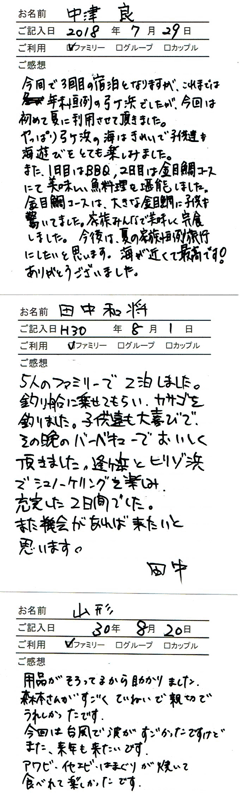 お名前 中津 良
ご記入日 2018 年 7 月 29 日
ご利用 ☑ファミリー □グループ □カップル
ご感想
今回で3回目の宿泊となりますが、これまでは
年末恒例の弓ヶ浜でしたが、今回は
初めて夏に利用させて頂きました。
やっぱり弓ヶ浜の海はきれいで子供達も
海遊びをとても楽しみました。
また、1日目はBBQ、2日目は金目鯛コース
にて美味しい魚料理を堪能しました。
金目鯛コースは、大きな金目鯛に子供も
驚いてました。家族みんなで美味しく完食
しました。今後は、夏の家族恒例旅行
にしたいと思います。海が近くて最高です!
ありがとうございました。
お名前 田中和将
ご記入日 H30 年 8 月 1 日
ご利用 ☑ファミリー □グループ □カップル
ご感想
5人のファミリーで2泊しました。
釣り船に乗せてもらい、カサゴを
釣りました。子供達も大喜びで、
その晩のバーベキューでおいしく
頂きました。逢ヶ浜とヒリゾ浜
でシュノーケリングを楽しみ、
充実した2日間でした。
また機会があれば来たいと
思います。
田中
お名前 山形
ご記入日 30年 8月 20日
ご利用 ☑ファミリー □グループ □カップル
ご感想
用品がそろってるから助かりました。
森本さんがすごくていねいで親切で
うれしかったです。
今回は台風で波がすごかったですけど
また、来年も来たいです。
アワビ・伊セエビ・はまぐりが焼いて
食べれて楽しかったです。